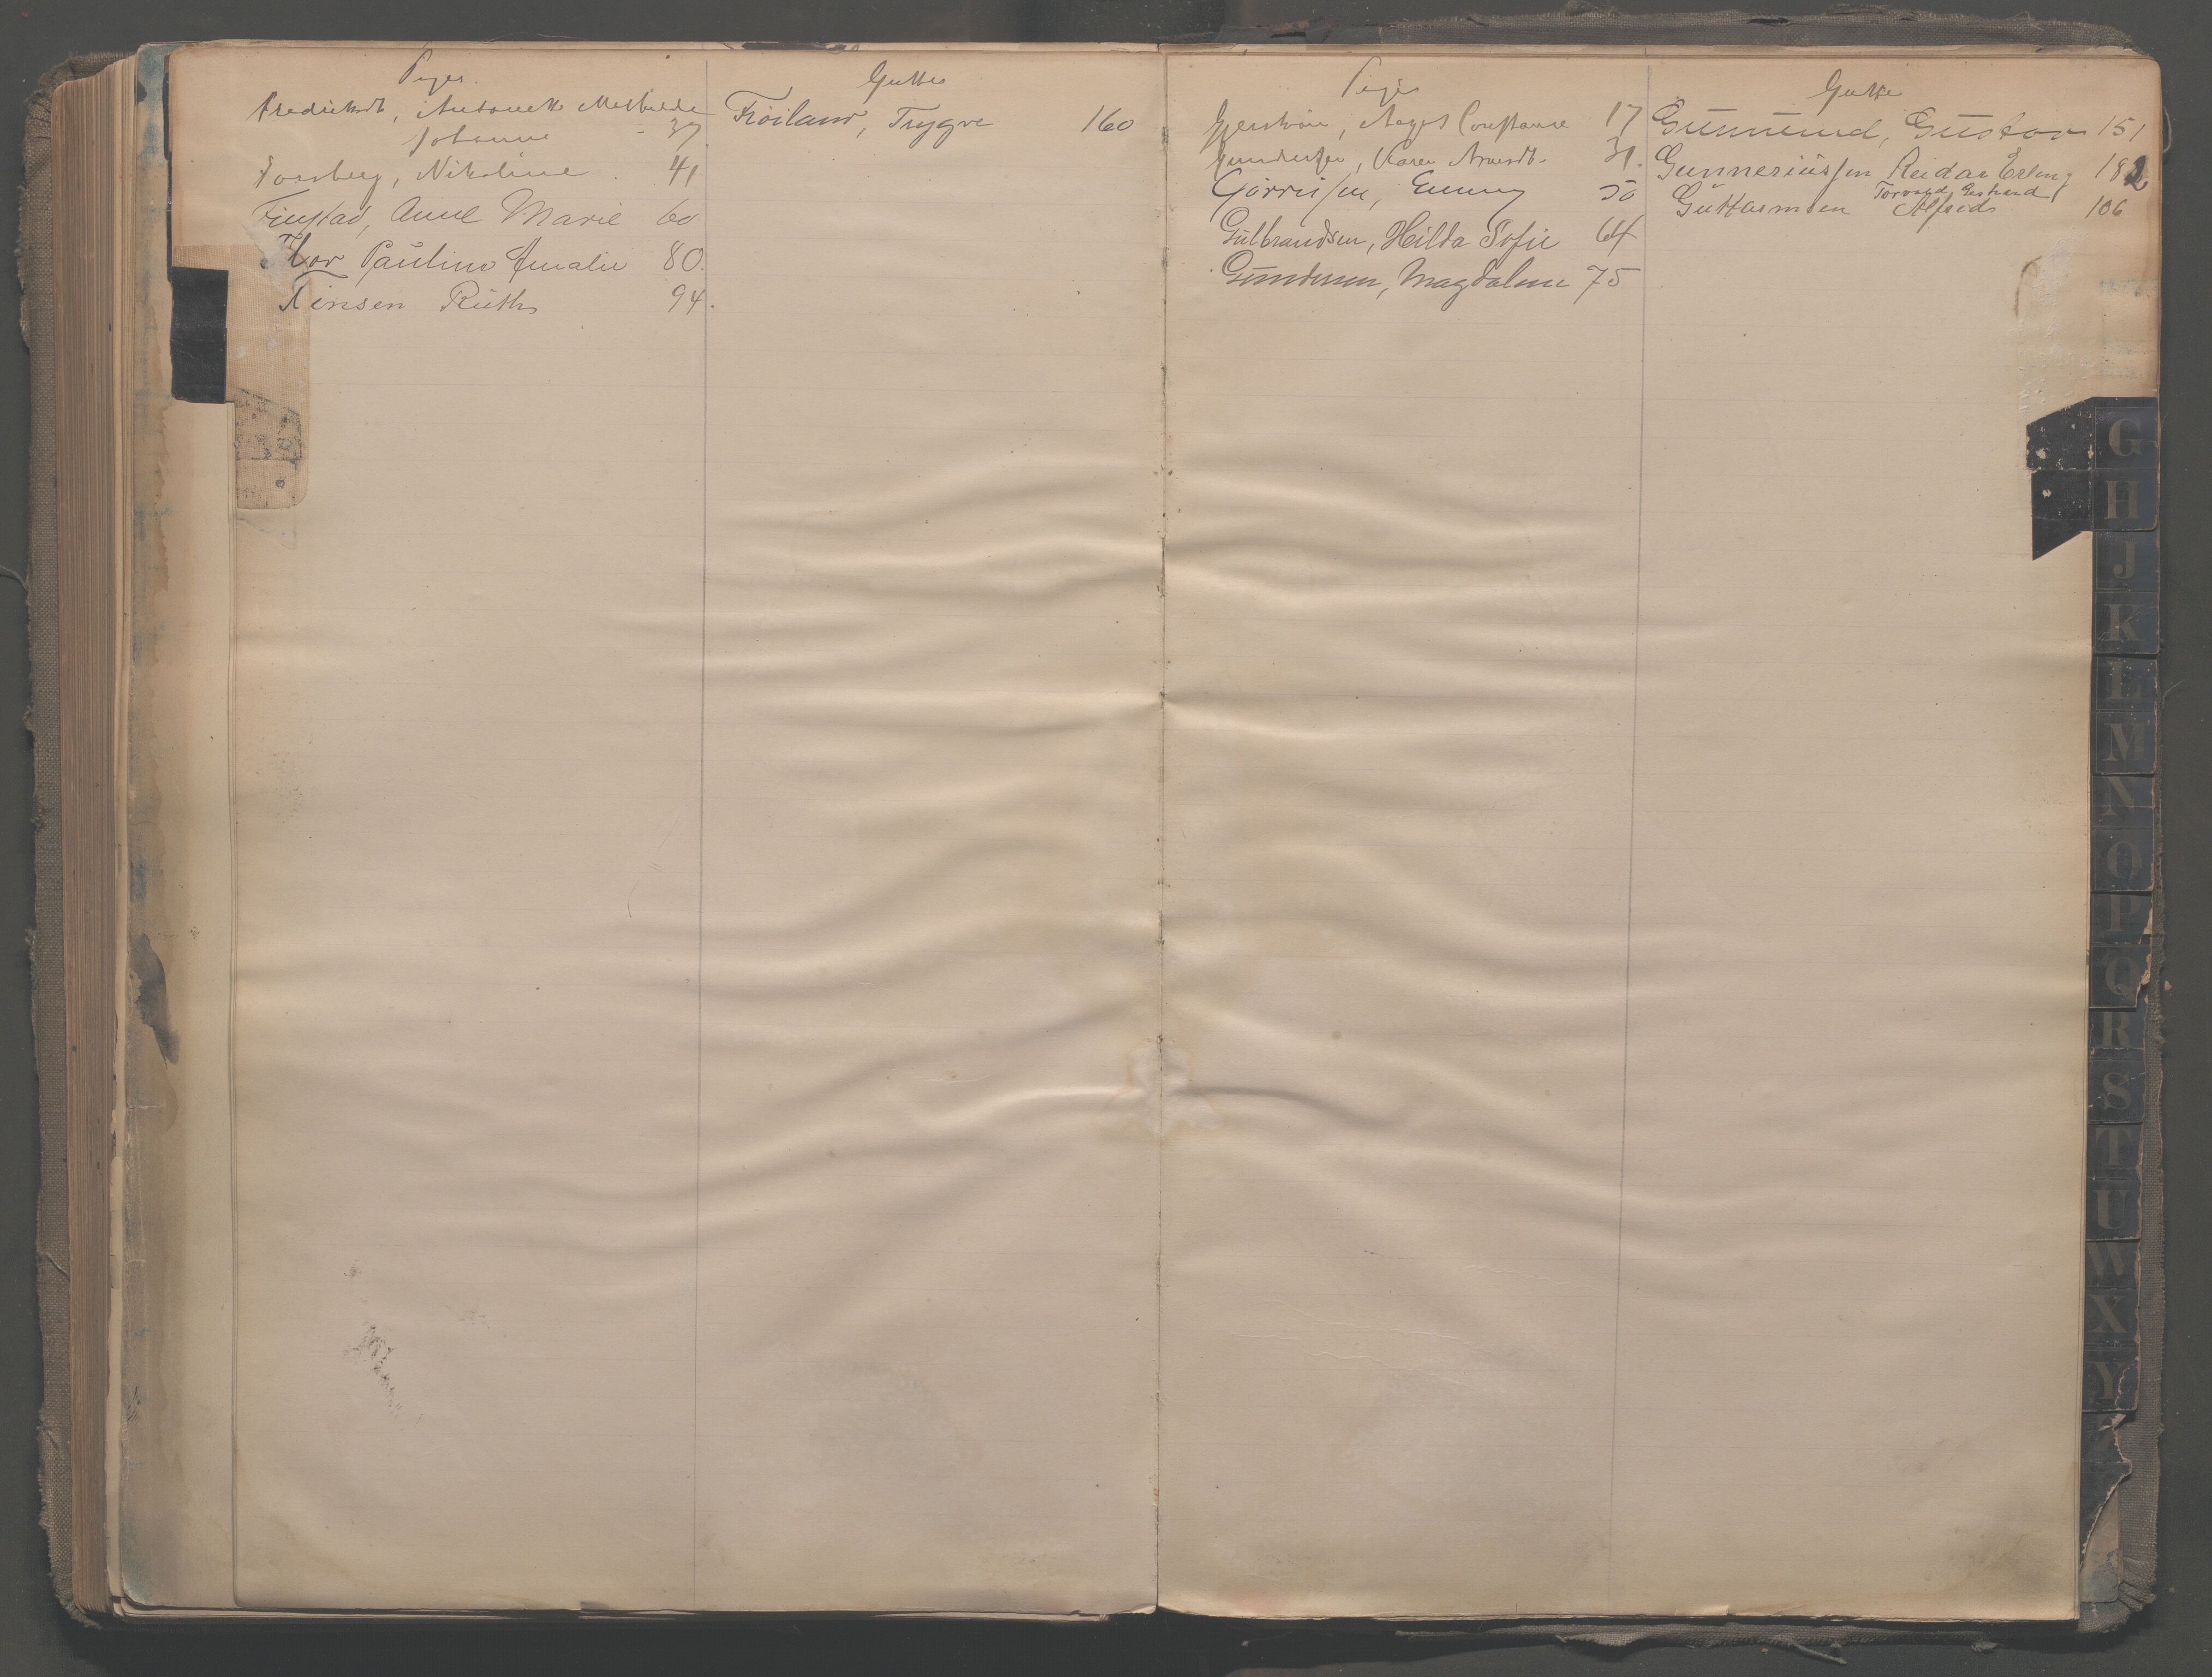 Piger
Antonette Mathilde
Johanne 37
Forsberg, Nikoline 41
Finstad, Anne Marie 60
Flor Pauline Amalie 80.
Finsen Ruth 94.
Gutter
Frøiland, Trygve 160
Piger
Agnes Constance 17
Gundersen, Karen 31.
Gørrissen, Emmy 50
Gulbrandsen, Hilda Sofie 64
Gundersen, Magdalene 75
Gutter
Gunnerud, Gustav 151
Gunneriussen Reidar Erling 182
Guttormsen Alfred 106
G
H
J
K
L
M
N
O
P
Q
R
S
T
U
W
X
Y